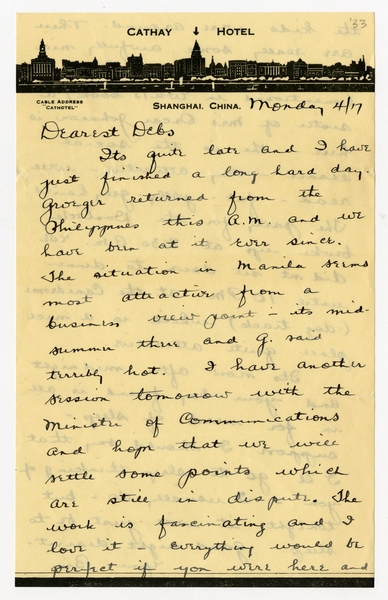 '33
CATHAY HOTEL
CABLE ADDRESS
"CATHOTEL"
SHANGHAI, CHINA. Monday 4/17
Dearest Debs
Its quite late and I have
just finished a long hard day.
Groeger returned from the
Philippines this A.M. and we
have been at it ever since.
The situation in Manila seems
most attractive from a
business view point - its mid-
summer there and G. said
terribly hot. I have another
session tomorrow with the
Minister of Communications
and hope that we will
settle some points which
are still in dispute. The
work is fascinating and I
love it - everything would be
perfect if you were here and